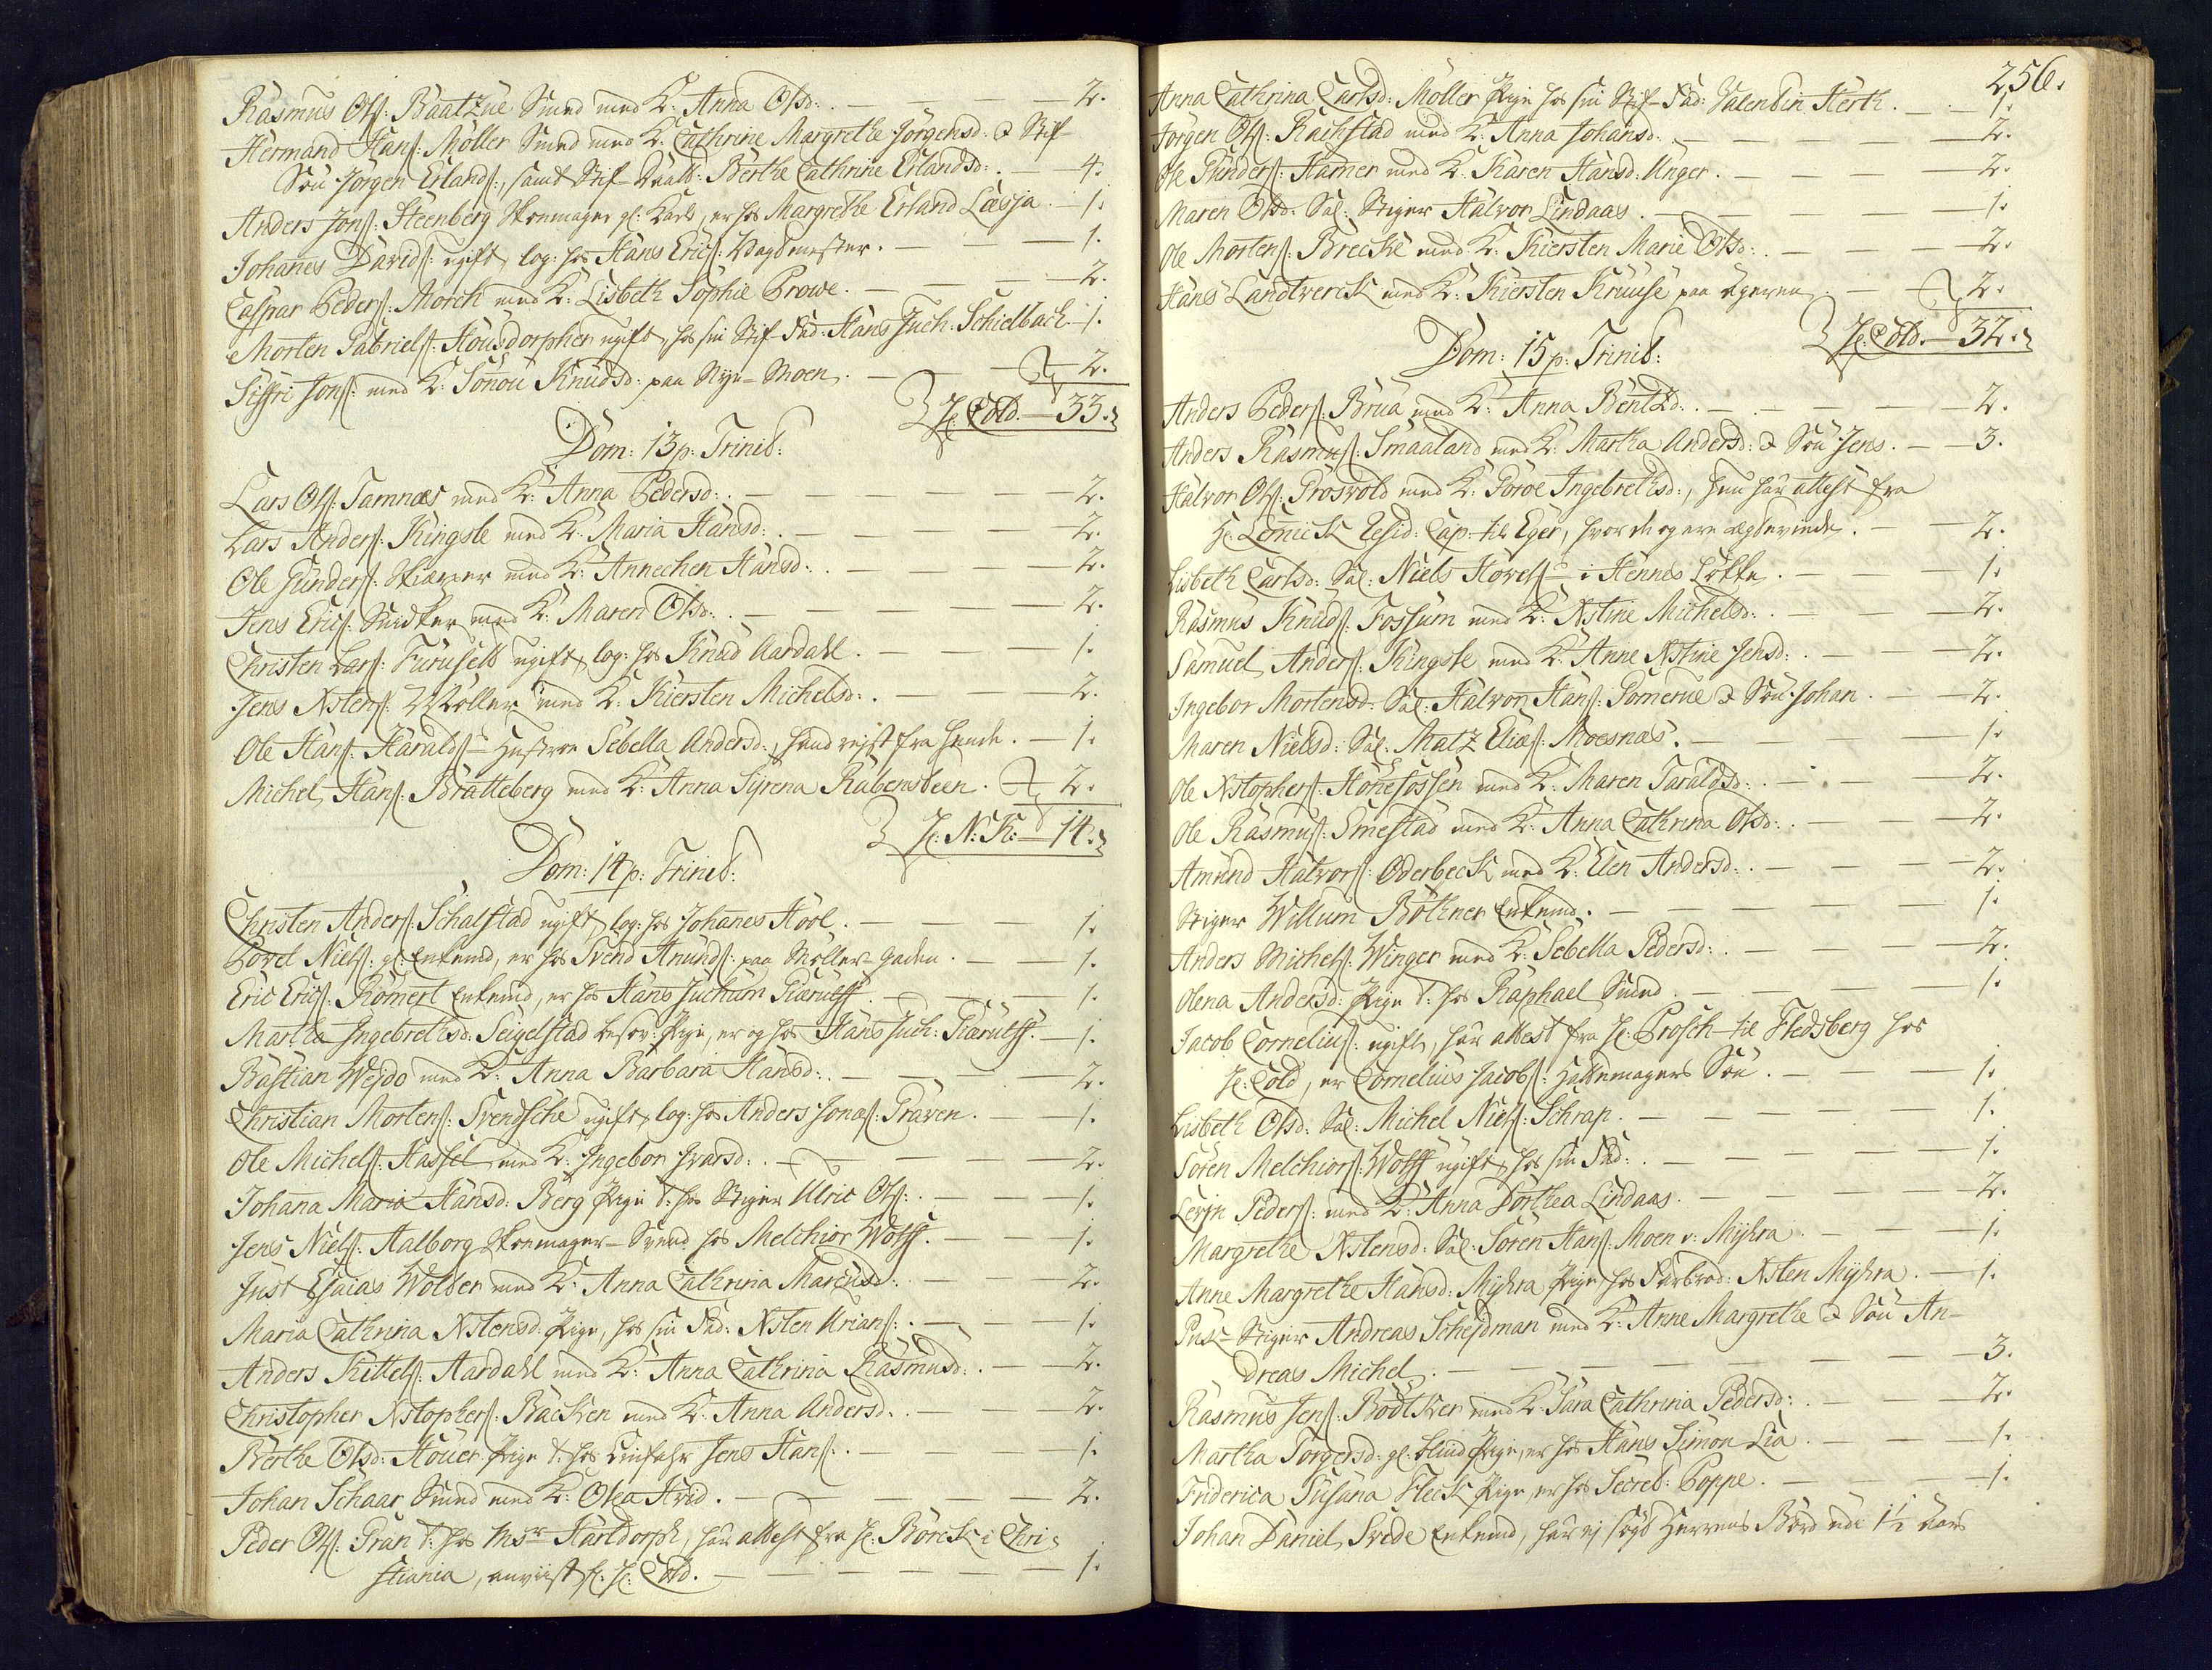 Rasmus Ols: Baatzue Smed med K: Anna Olsd:. — — — 2.
Hermand Hans: Møller Smed med K: Cathrine Margrethe Jørgensd: & Stif-
Søn Jørgen Erlands:, samt Stif-Daatt: Berthe Cathrine Erlandsd:. — 4.
Anders Jons: Steenberg Skoemager gl: Karl, er hos Margrethe Erland Læsja. — 1.
Johanes Davids: ugift, log: hos Hans Erics: Vagtmester. — — 1.
Caspar Peders: Morch med K: Lisbeth Sophie Prowe. — — — 2.
Morten Gabriels: Housdorpher ugift, hos sin Stif-Fad: Hans Juch: Schielbach — 1.
Siffri Jons: med K: Sønou Knudsd: paa Nye-Moen. — — 2.
H: Cold. — 33.
Dom: 13 p: Trinit:
Lars Ols: Tamnæs med K: Anna Pedersd:. — — — 2.
Lars Anders: Kingste med K: Maria Hansd:. — — — 2.
Ole Gunders: Skiærer med K: Annechen Hansd:. — — — 2.
Jens Erics: Snidker med K: Maren Olsd:. — — — 2.
Christen Lars: Furuset ugift, log: hos Knud Aardahl. — — — 1.
Jens Xstens: Møller med K: Kiersten Michelsd:. — — 2.
Ole Hans: Haralds: Hustroe Sebella Andersd:, hand rejst fra hende. — 1.
Michel Hans: Bratteberg med K: Anna Syrena Rabensteen. 2.
H: N: K: — 14.
Dom: 14 p: Trinit:
Christen Anders: Schalstad ugift, log: hos Johanes Hoel. — — — 1.
Povel Niels: gl: Enkemd, er hos Svend Amunds: paa Møller-Gaden. — — 1.
Eric Erics: Rømert Enkemd, er hos Hans Juchum Piærulff. — — 1.
Martha Ingebrethsd: Seigelstad besov: Pige, er og hos Hans Juch: Piærulff. — 1.
Bastian Wejdo med K: Anna Barbara Hansd:. — — — 2.
Christian Mortens: Svendsche ugift, log: hos Anders Jonas: Graven. — 1.
Ole Michels: Hassel med K: Ingebor Ivarsd:. — — — 2.
Johana Maria Hansd: Berg Pige t: hos Stiger Ulric Ols:. — — 1.
Jens Niels: Aalborg Skoemager-Svend hos Melchior Wolff. — — 1.
Just Esaias Wolber med K: Anna Cathrina Marcusd:. — — 2.
Maria Cathrina Xstensd: Pige, hos sin Fad: Xsten Urians:. — — — 1.
Anders Kittels: Aardahl med K: Anna Cathrina Rasmusd:. — — 2.
Christopher Xstophers: Backen med K: Anna Andersd:. — — 2.
Berthe Olsd: Houer Pige t: hos Einfahr Jens Hans:. — — — 1.
Johan Schaar Smed med K: Olea Hvid. — — — 2.
Peder Ols: Gran t: hos Msr Harldorph, har attest fra H: Børck i Chri-
stiania, anviist fr: H: Cold. — — — — — 1.
256.
Anna Cathrina Carlsd: Møller Pige hos sin Stif-Fad: Valentin Herth. — 1.
Jørgen Ols: Rachstad med K: Anna Johansd:. — — — 2.
Ole Gunders: Hamer med K: Karen Hansd: Unger. — — — 2.
Maren Olsd: Sal: Stiger Halvor Lindaas. — — — — 1.
Ole Mortens: Brecke med K: Kiersten Marie Olsd:. — — — 2.
Hans Landtverck med K: Kiersten Kruuse paa Ageren. — 2.
H: Cold. — 32.
Dom: 15 p: Trinit:
Anders Peders: Brua med K: Anna Bentzd:. — — — — 2.
Anders Rasmus: Smaaland med K: Martha Andersd: & Søn Jens. — 3.
Halvor Ols: Grosvold med K: Goroe Ingebrethsd:, hun har attest fra
H: Lemick resid: Cap: til Eger, hvor de og ere ægteviede. — 2.
Lisbeth Carlsd: Sal: Niels Hovels: i Hennes Løkke. — — — 1.
Rasmus Knuds: Fossum med K: Xstine Michelsd:. — — 2.
Samuel Anders: Kingste med K: Anne Xstine Jensd:. — — 2.
Ingebor Mortensd: Sal: Halvor Hans: Gomerue & Søn Johan. — 2.
Maren Nielsd: Sal: Matz Elias: Moesnæs. — — — — 1.
Ole Xstophers: Hønefossen med K: Maren Taraldsd:. — — 2.
Ole Rasmus: Smestad med K: Anna Cathrina Olsd:. — — 2.
Amund Halvors: Oderbeck med K: Elen Andersd:. — — — 2.
Stiger Willum Bøthner Enkemd. — — — — — 1.
Anders Michels: Winger med K: Sebella Pedersd:. — — — 2.
Olena Andersd: Pige t: hos Raphael Smed. — — — 1.
Jacob Cornelius: ugift, har attest fra H: Brosch til Fledsberg hos
H: Cold, er Cornelius Jacobs: Hattemagers Søn. — — — 1.
Lisbeth Olsd: Sal: Michel Niels: Schrap. — — — — 1.
Søren Melchiors: Wolff ugift, hos sin Fad:. — — — — 1.
Levin Peders: med K: Anna Dorthea Lindaas. — — — 2.
Margrethe Xstensd: Sal: Søren Hans: Moen v: Myhra. — — 1.
Anne Margrethe Hansd: Myhra Pige, hos Farbrod: Xsten Myhra. — 1.
Puk-Stiger Andreas Schejdman med K: Anne Margrethe & Søn An-
dreas Michel. — — — — — 3.
Rasmus Jens: Bødtker med K: Sara Cathrina Pedersd:. — — 2.
Martha Torgersd: gl: blind Pige, er hos Hans Simon Lia. — — 1.
Friderica Susana Fleck Pige, er hos Secret: Poppe. — — — 1.
Johan Daniel Svede Enkemd, har ej søgt Herrens Bord udi 1½ Aar